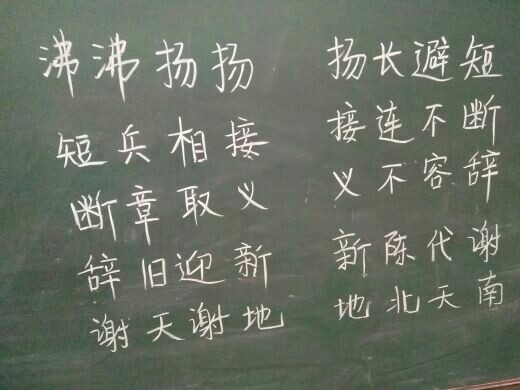 沸沸扬扬 扬长避短
短兵相接 接连不断
断章取义 义不容辞
辞旧迎新 新陈代谢
谢天谢地 地北天南